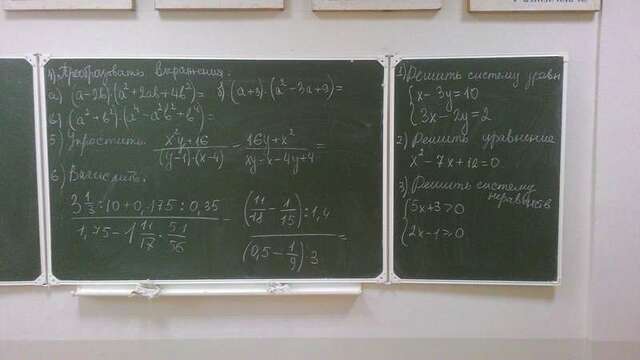 4) Преобразовать выражения:
а) (a-2b)·(a²+2ab+4b²)= б) (a+3)·(a²-3a+9)=
в) (a²+b²)·(a⁴-a²b²+b⁴)=
5) Упростить: (x²y+16)/((y-1)·(x-4)) - (16y+x²)/(xy-x-4y+4) =
6) Вычислить:
(3 1/3 : 10 + 0,175 : 0,35)/(1,75 - 1 11/17 · 51/56) - ((11/18 - 1/15) : 1,4)/((0,5 - 1/9) · 3) =
1) Решить систему уравн
{x-3y=10
{3x-2y=2
2) Решить уравнение
x²-7x+12=0
3) Решить систему
неравенств
{5x+3>0
{2x-1≥0